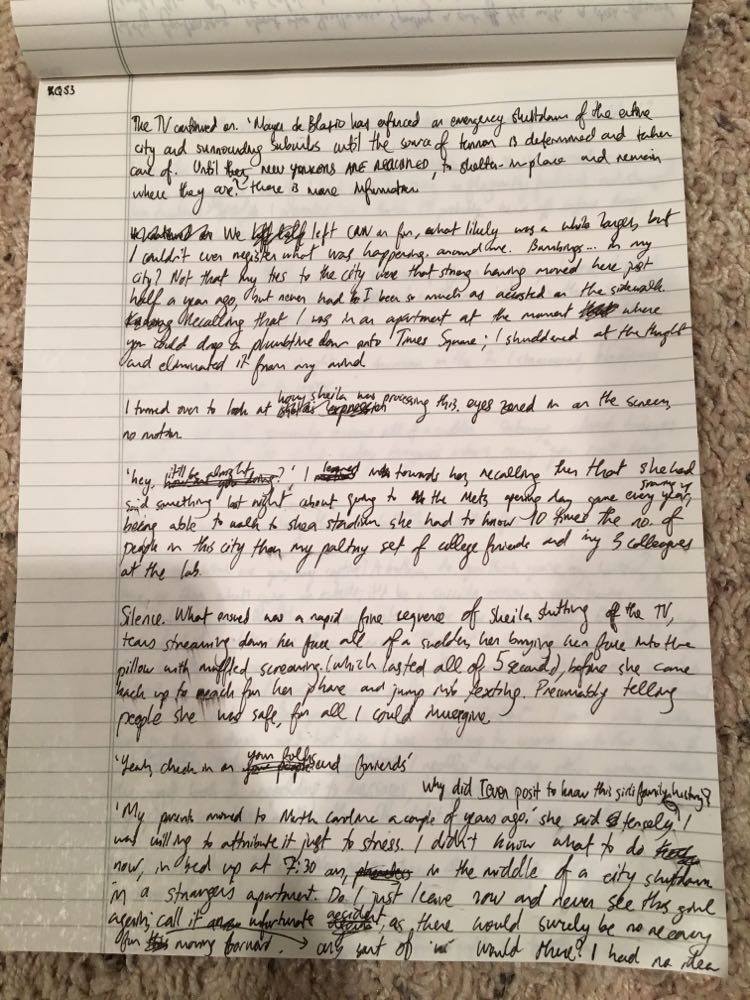 KQS3
The TV continued on. 'Mayor de Blasio has enforced an emergency shutdown of the entire
city and surrounding suburbs until the source of terror is determined and taken
care of. Until then, NEW YORKERS ARE REQUIRED, to shelter-in-place and remain
where they are.' there is more information
We left CNN on for, what likely was a while longer, but
I couldn't even register what was happening around me. Bombings... in my
city? Not that my ties to the city were that strong having moved here just
half a year ago, but never had I been so much as accosted on the sidewalk.
Recalling that I was in an apartment at the moment where
you could drop a plumbline down onto Times Square; I shuddered at the thought
and eliminated it from my mind.
I turned over to look at how sheila was processing this. eyes zoned in on the screen,
no motion.
'hey, it'll be alright' I leaned towards her, recalling then that she had
said something last night about going to the Mets opening day game every year growing up
being able to walk to shea stadium she had to know 10 times the no. of
people in this city than my paltry set of college friends and my 5 colleagues
at the lab.
Silence. What ensued was a rapid fire sequence of Sheila shutting off the TV,
tears streaming down her face all of a sudden, her burying her face into the
pillow with muffled screaming (which lasted all of 5 seconds), before she came
back up to reach for her phone and jump into texting. Presumably telling
people she was safe, for all I could imagine.
'Yeah, check in on your folks and friends'
Why did I even posit to know this girl's family history?
'My parents moved to North Carolina a couple of years ago,' she said tensely. I
was willing to attribute it just to stress. I didn't know what to do
now, in bed up at 7:30 am, in the middle of a city shutdown
in a stranger's apartment. Do I just leave now and never see this girl
again, call it unfortunate accident, as there would surely be no recovery
for moving forward. any sort of would there? I had no idea